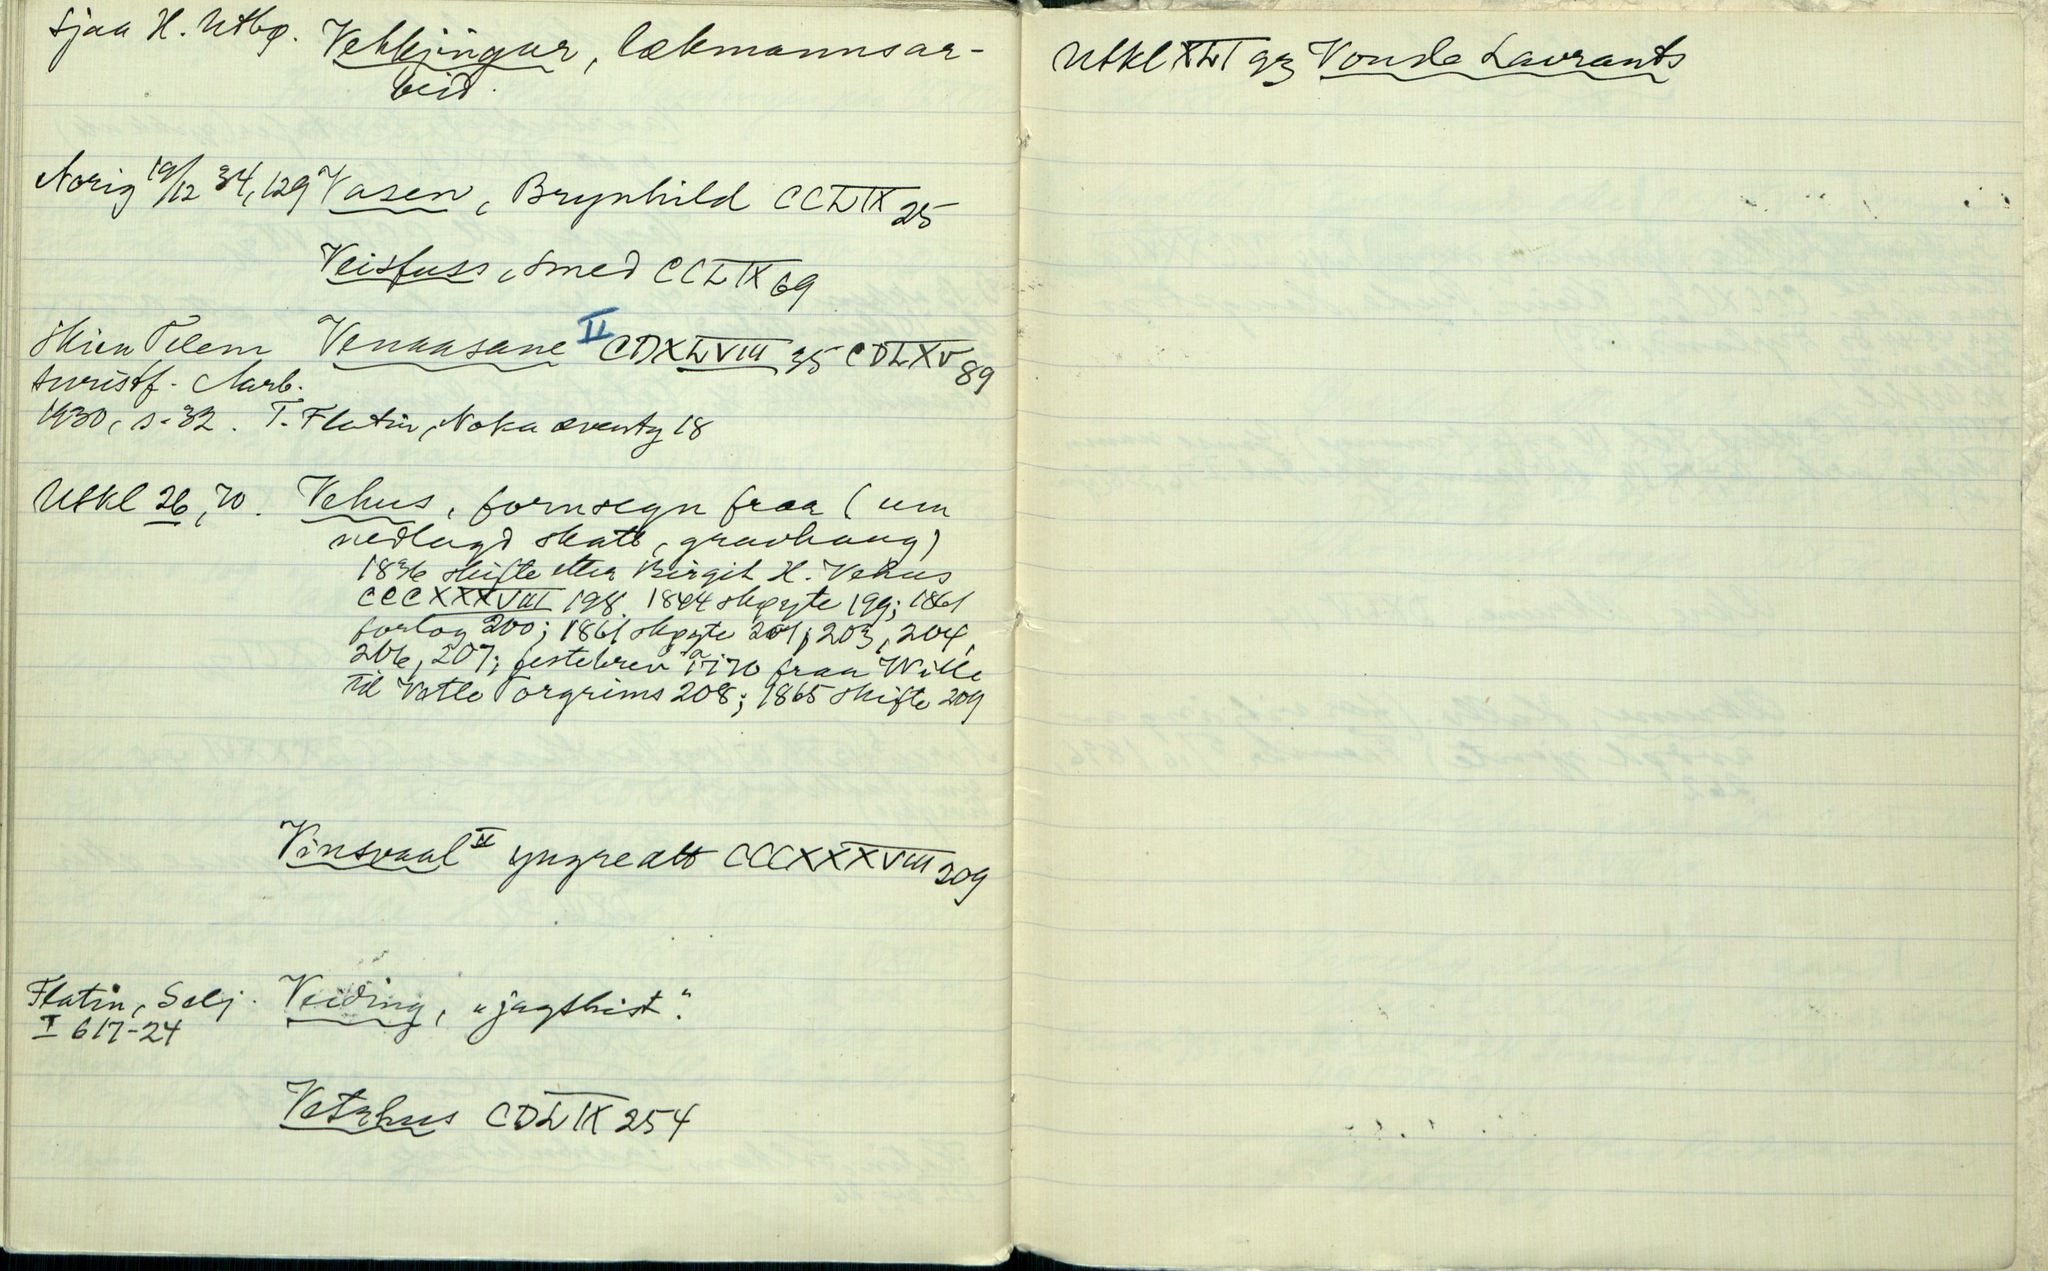 Sjaa H. Utbø. Vekkjingar, lækmannsar-
beid.
Norig 19/12 34, 129 Vasen, Brynhild CCLIX 25
Veisfuss, smed CCLIX 69
Skien Telem Venaasane II CDXLVIII 35 CDLXV 89
turistf. Aarb.
1930, s. 32. T. Flatin, Noka æventy 18
Utkl 26, 70. Vehus, fornsegn fraa (um
nedlagd skatt, gravhaug)
1836 skifte etter Birgit H. Vehus
CCCXXXVIII 198. 1844 skøyte 199; 1861
forlog 200; 1861 skøyte 201; 203, 204,
206, 207; festebrev 1770 fraa Wille
til Vetle Torgrims 208; 1865 skifte 209
Vinsvaal II yngre ætt CCCXXXVIII 209
Flatin, Selj. Veiding, "jagthist".
I 617-24
Vetrhus CDLIX 254
Utkl XLI 93 Vonde Lavrants